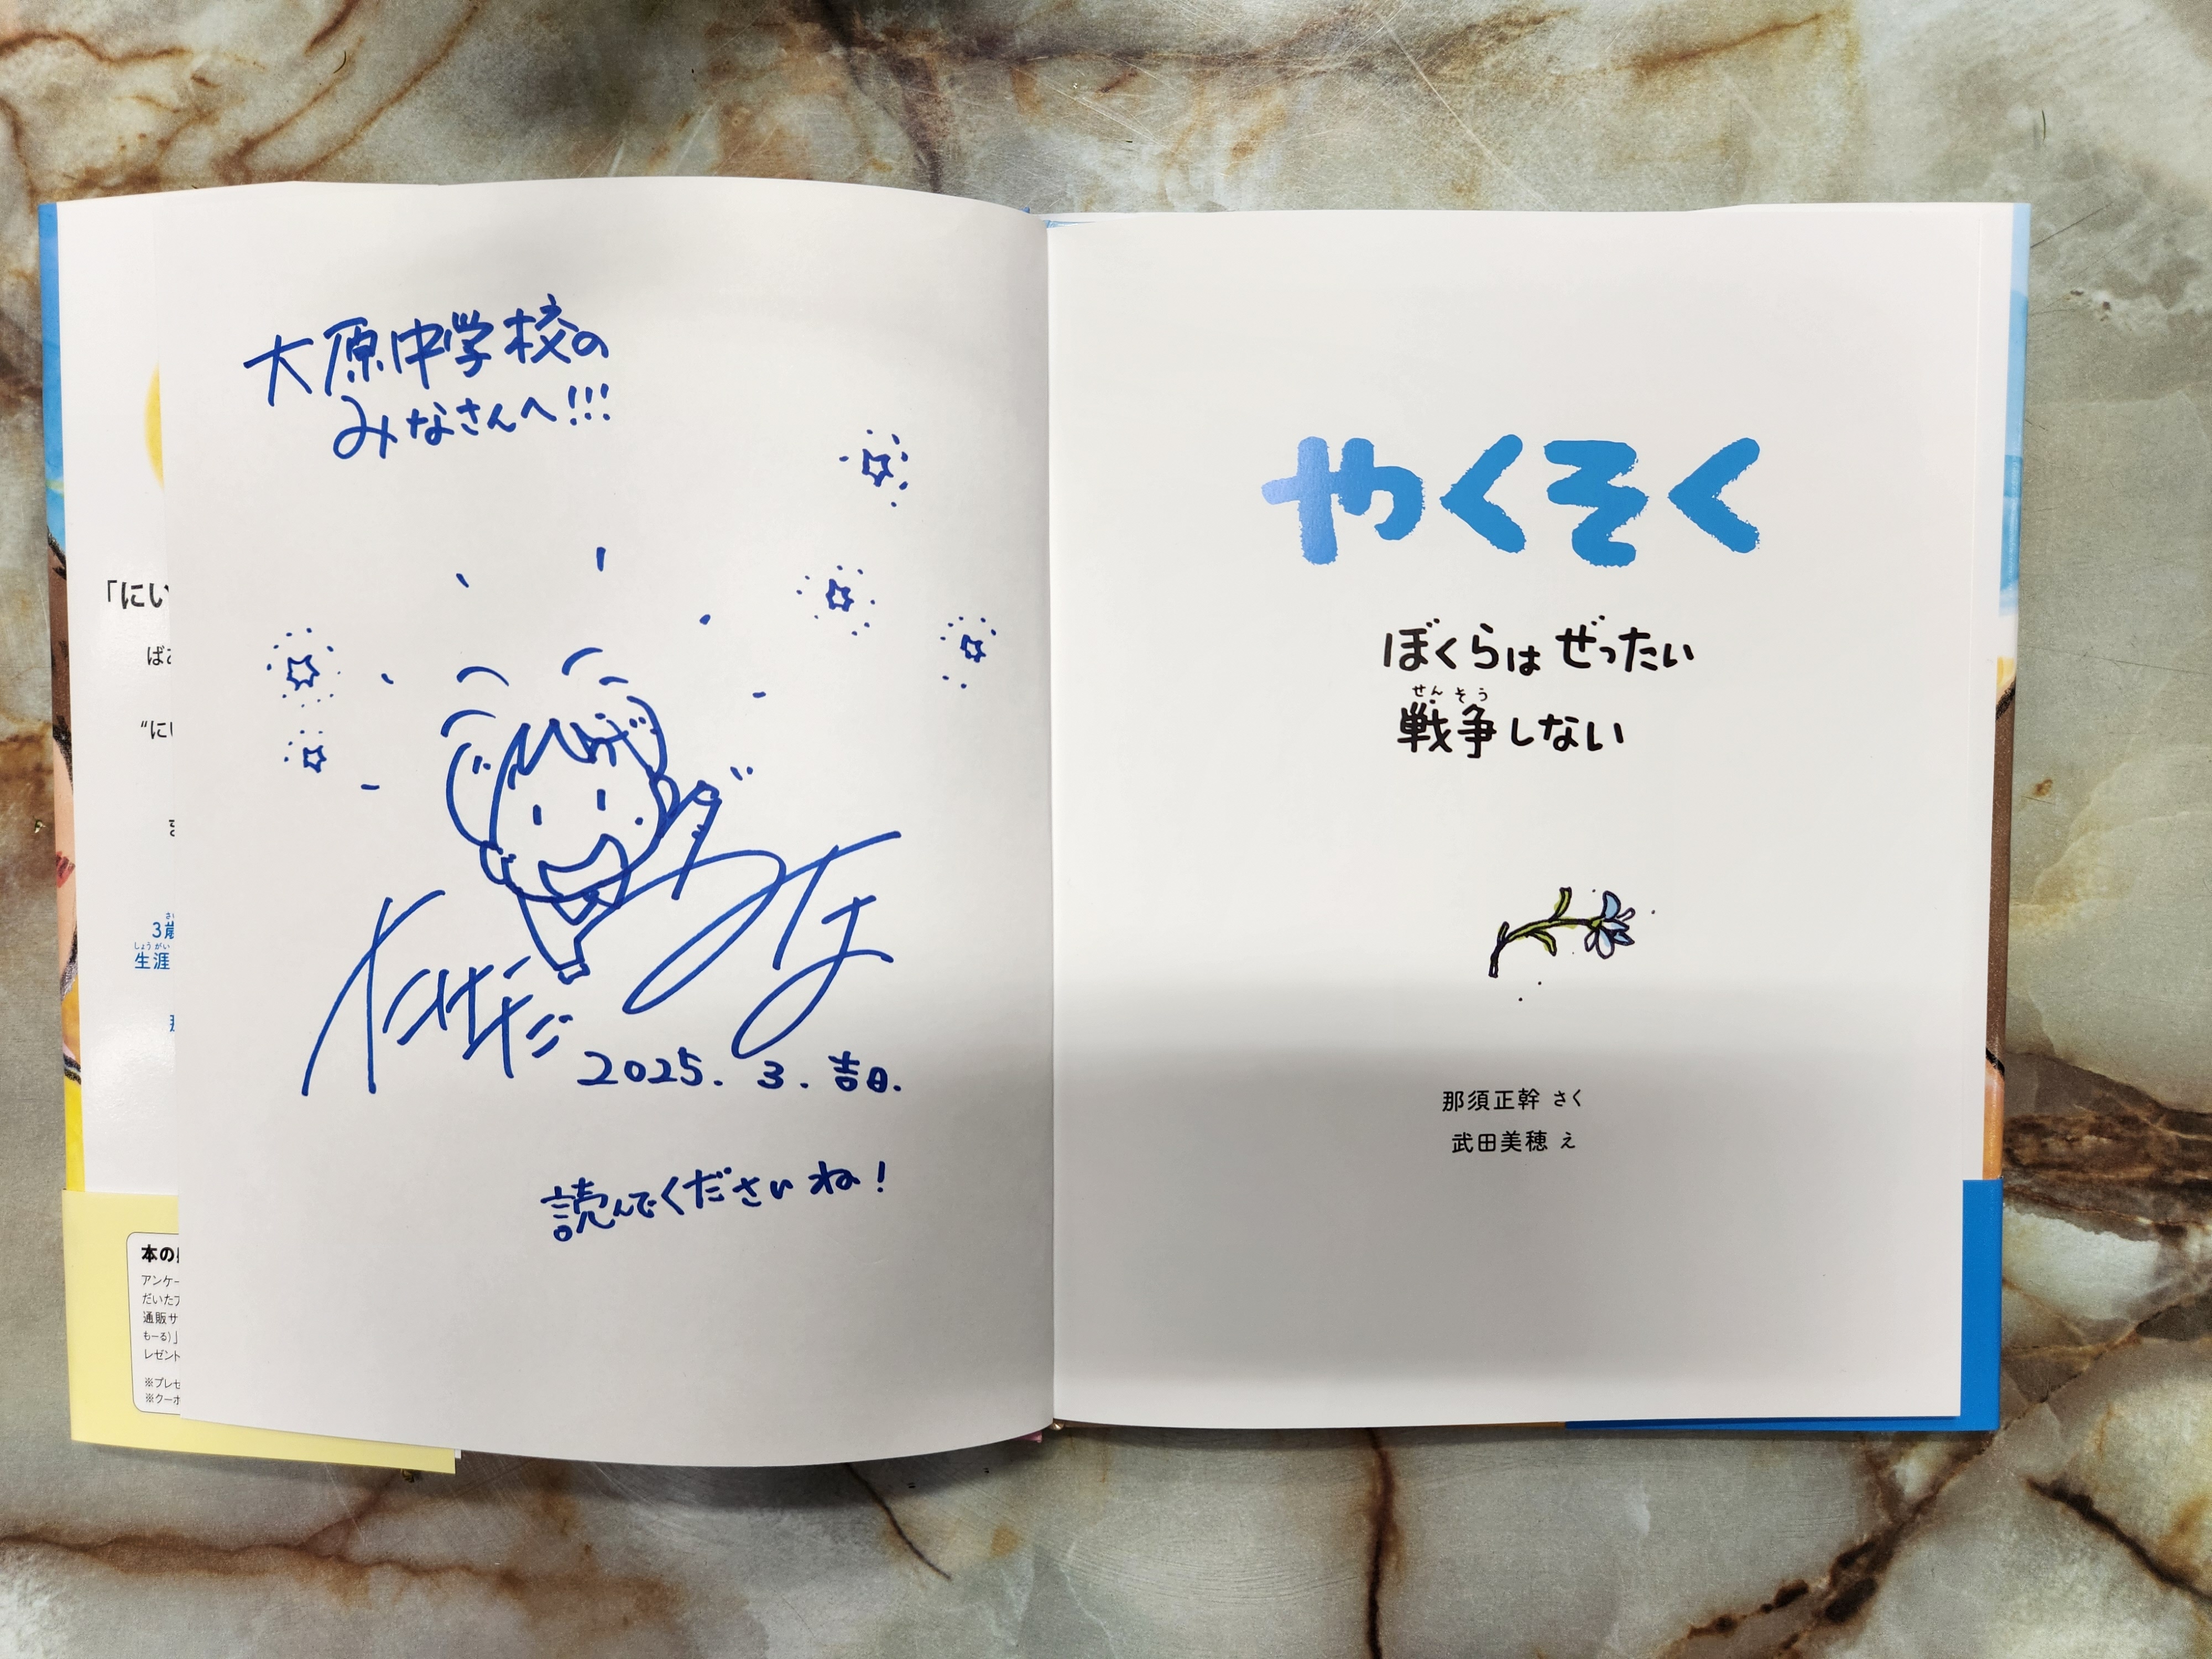 大原中学校の
みなさんへ!!!
2025. 3. 吉日.
読んでくださいね!
「にい
ばあ
“にい
3歳
さい
しょうがい
生涯
本の
アンケー
だいた
通販サ
もーる)」
レゼント
※プレゼ
※クーポ
やくそく
ぼくらは ぜったい
せんそう
戦争しない
那須正幹 さく
武田美穂 え